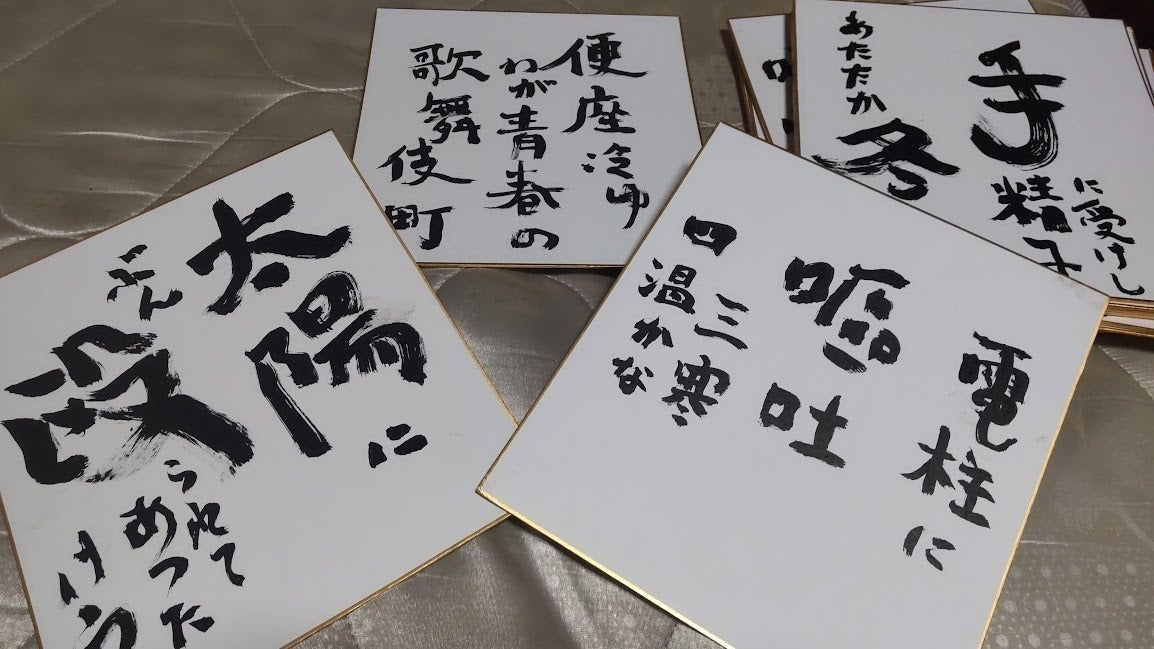 便座冷ゆ
わが青春の
歌舞伎町
手に受けし
精子
あたたか
冬
電柱に
嘔吐
三寒
四温かな
太陽に
ぶん殴
られて
あつた
けえ